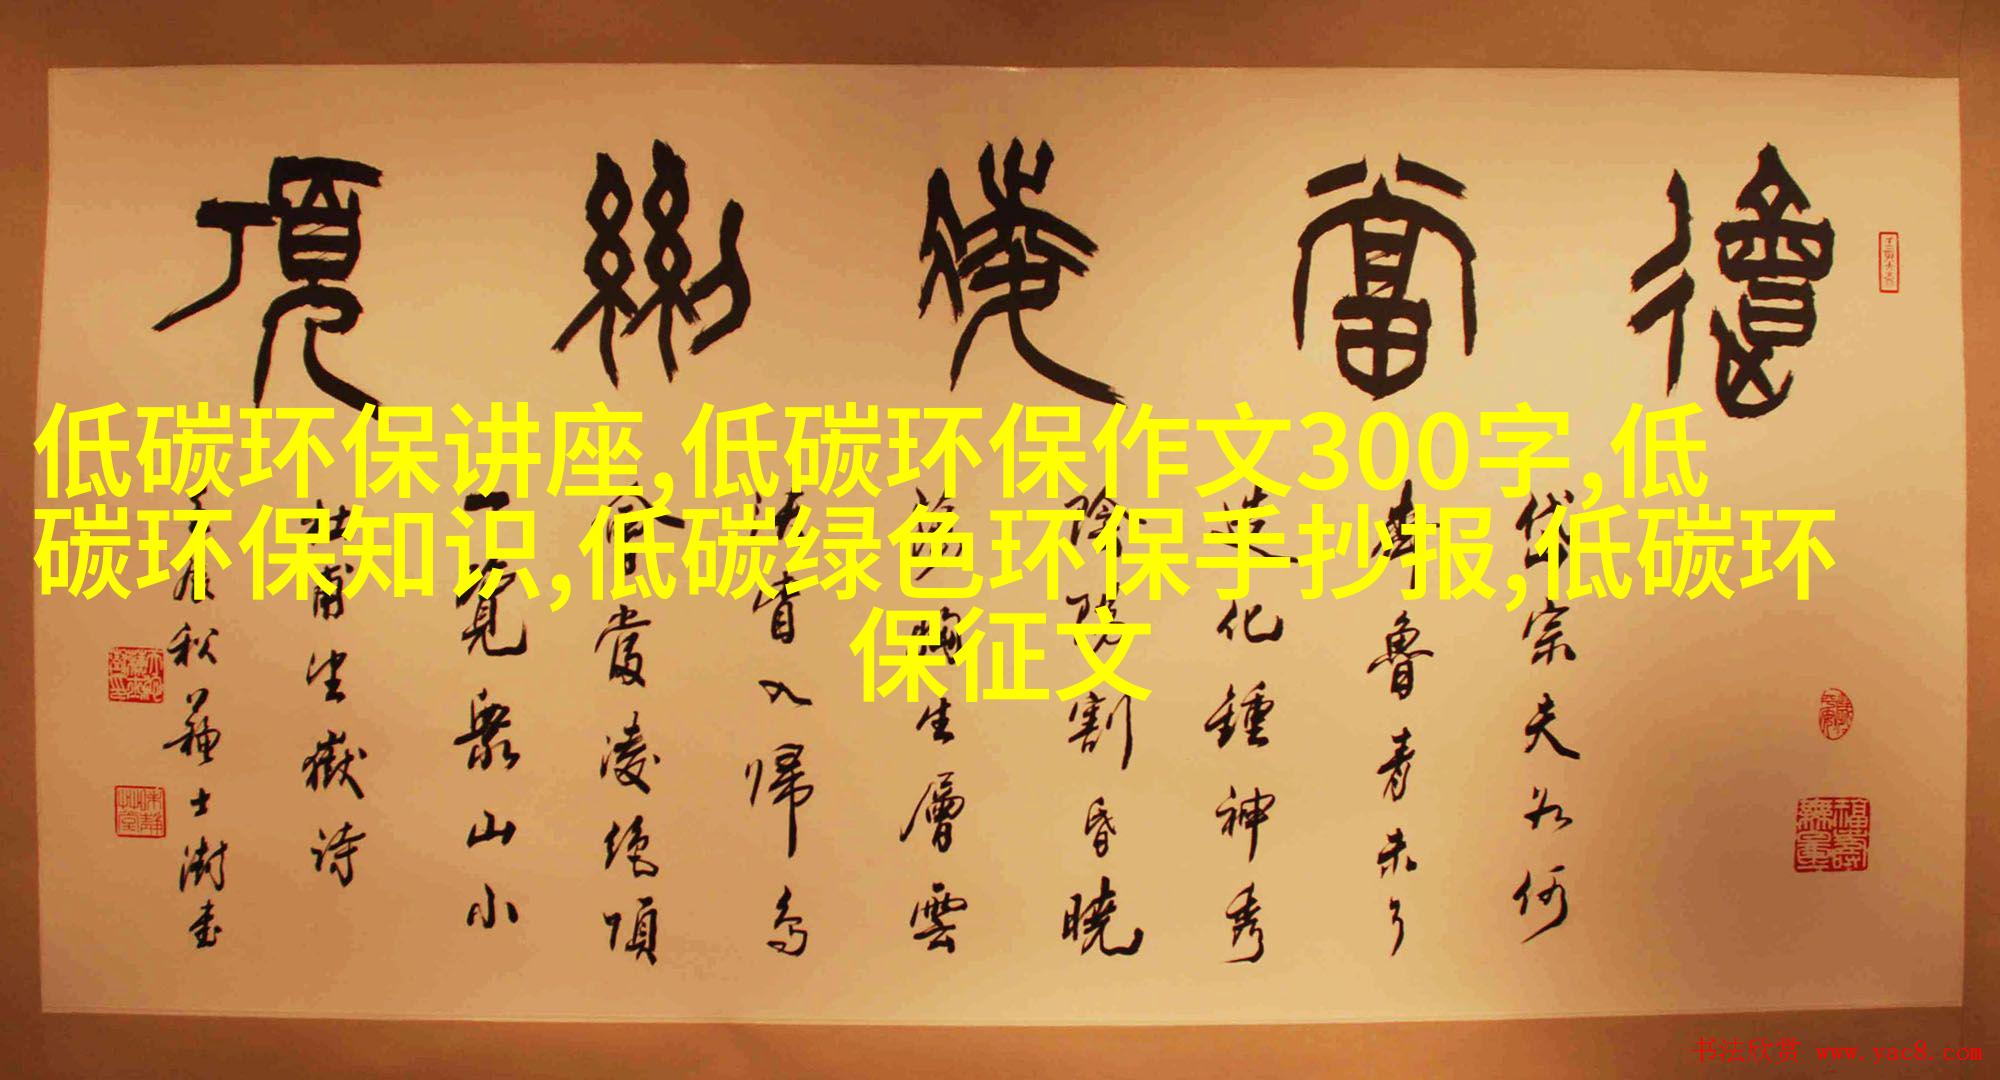 會當凌絕頂
岱宗夫如何
齊魯青未了
造化鍾神秀
陰陽割昏曉
盪胸生層雲
決眥入歸鳥
會當凌絕頂
一覽眾山小
杜甫望嶽詩
壬辰秋蘇士澍書
福壽無量
低碳环保讲座,低碳环保作文300字,低
碳环保知识,低碳绿色环保手抄报,低碳环
保征文
书法欣赏 www.yac8.com